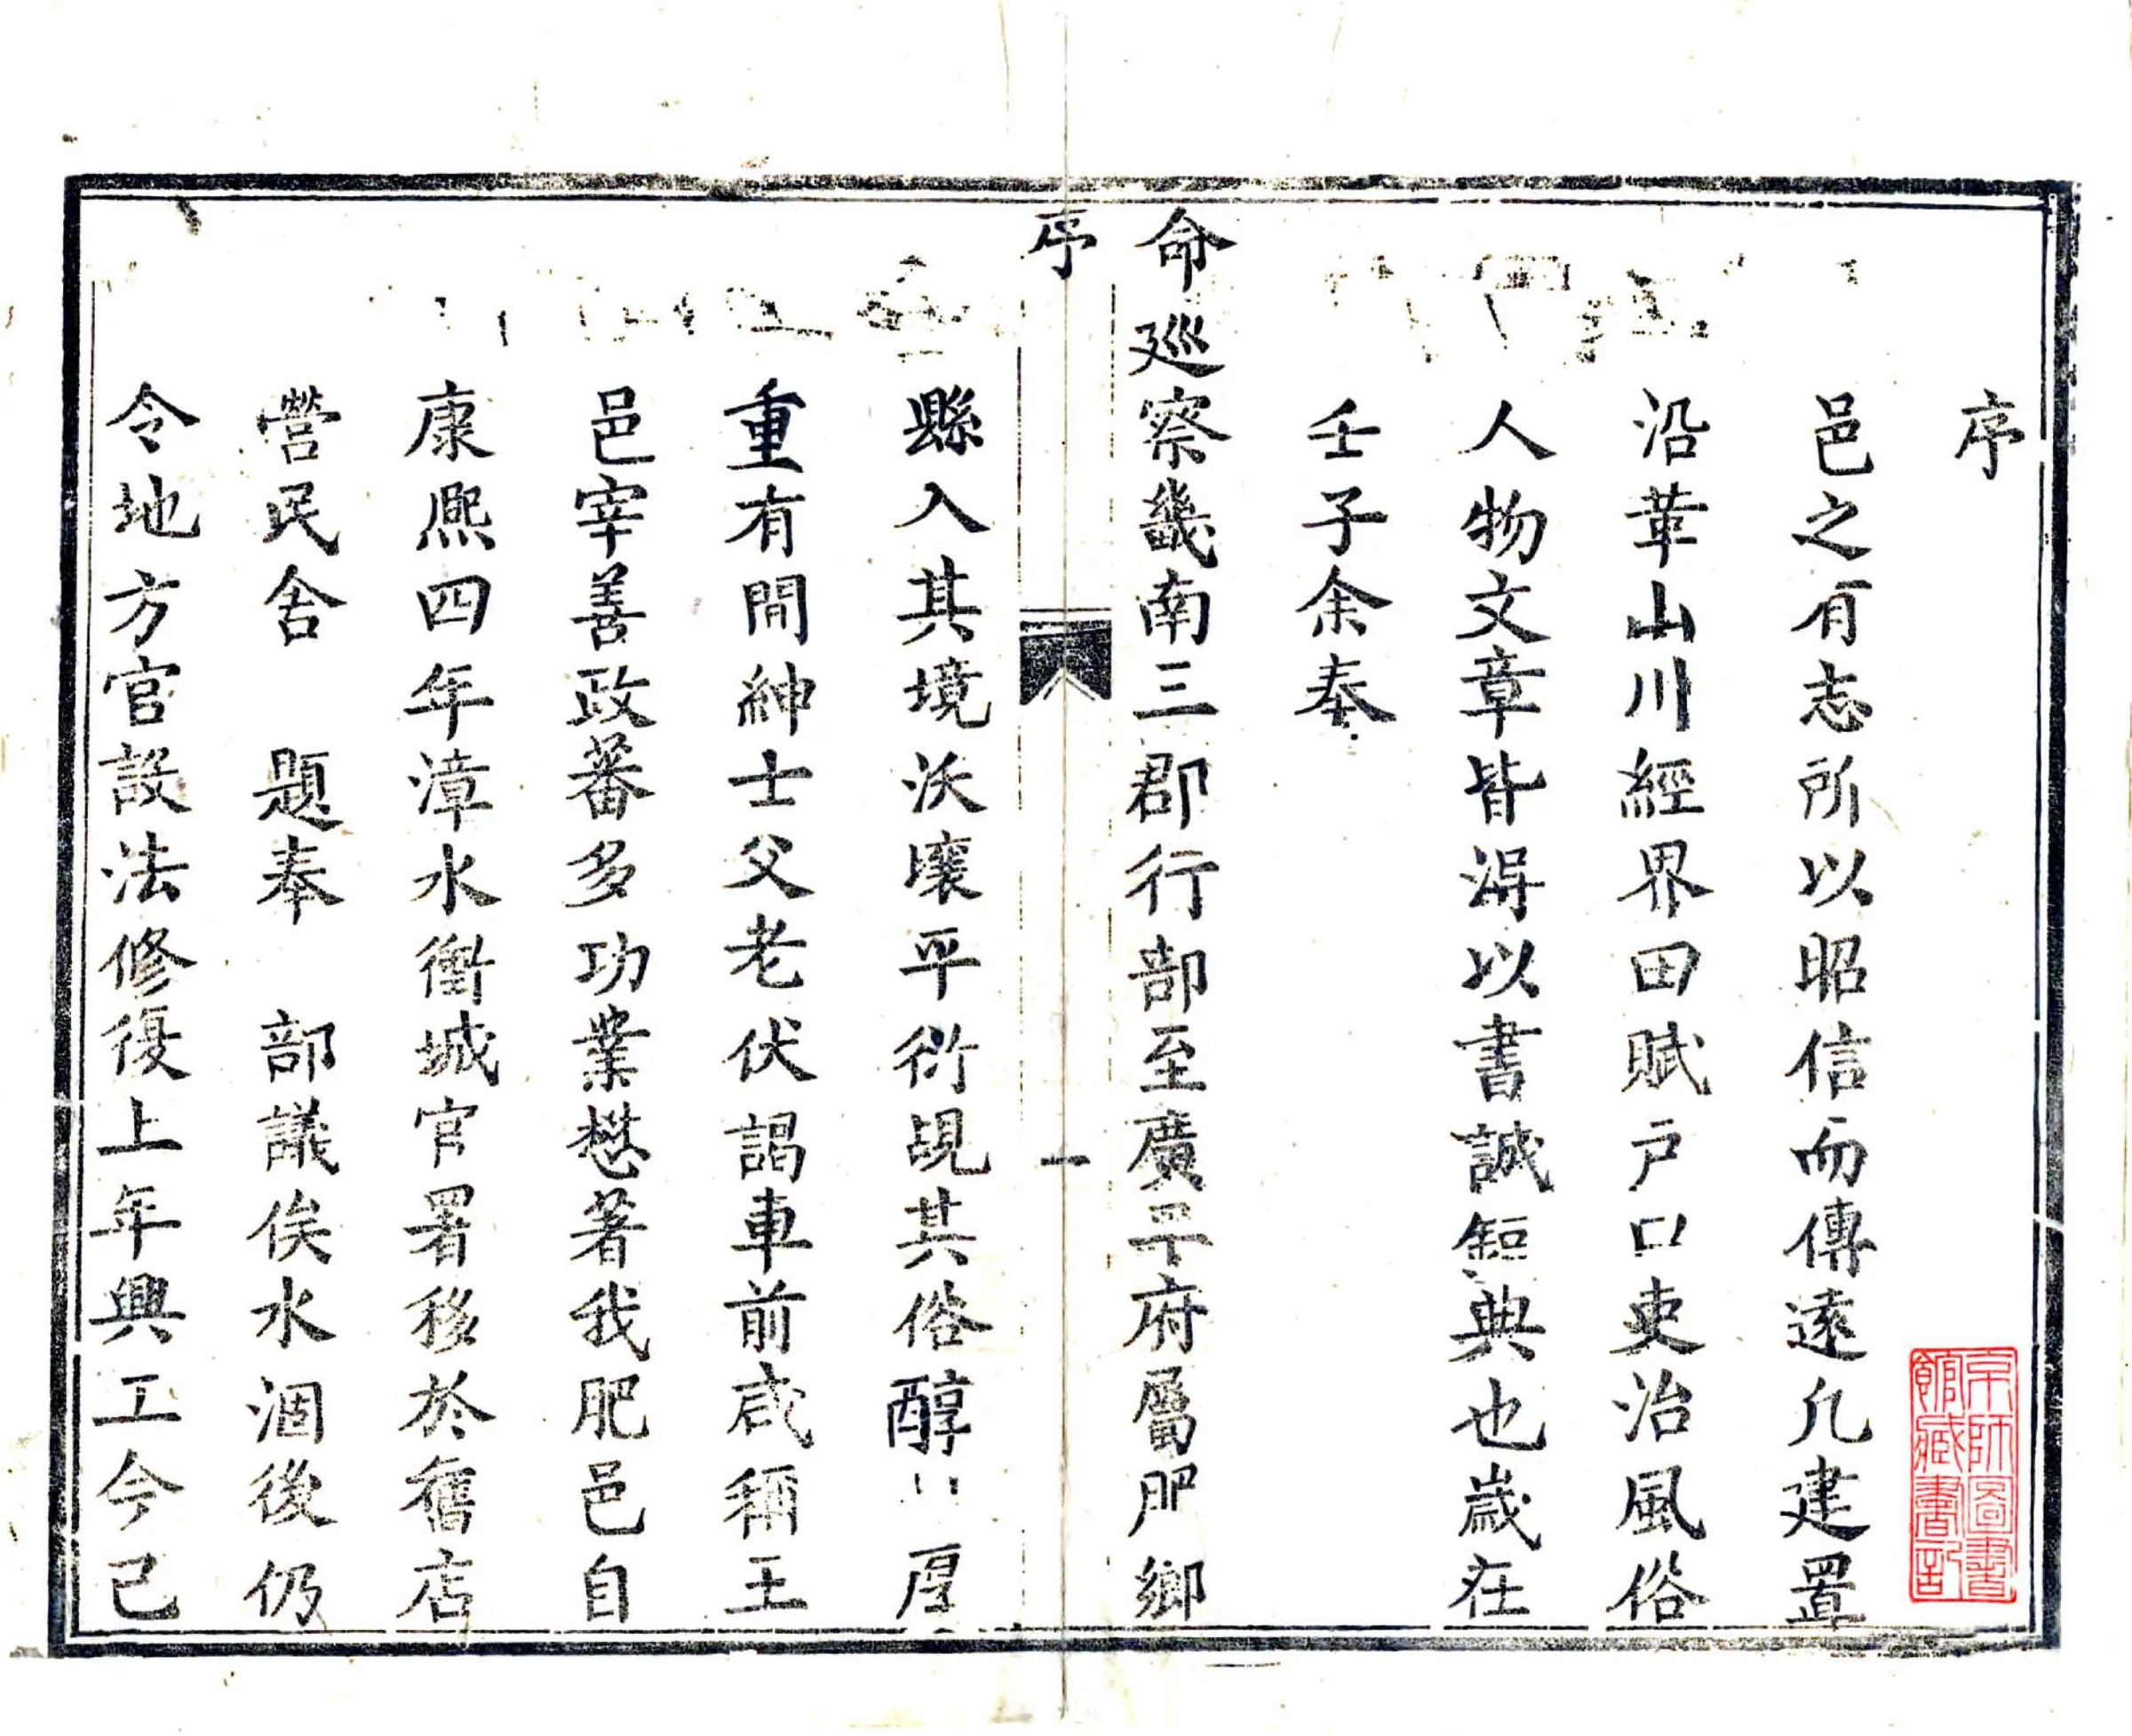 序
邑之有志所以昭信而傳遠凢建置
沿革山川經界田賦户口吏治風俗
人物文章皆淂以書誠鉅典也歲在
壬子余奉
命廵察畿南三郡行部至廣平府屬肥鄉
序
一
縣入其境沃壤平衍覘其俗醇〻厚
重有聞紳士父老伏謁車前咸稱王
邑宰善政蕃多功業懋著我肥邑自
康熈四年漳水衝城官署移於舊店
營民舍 題奉 部議俟水涸後仍
令地方官設法修復上年興工今已
京師圖書
館藏書記